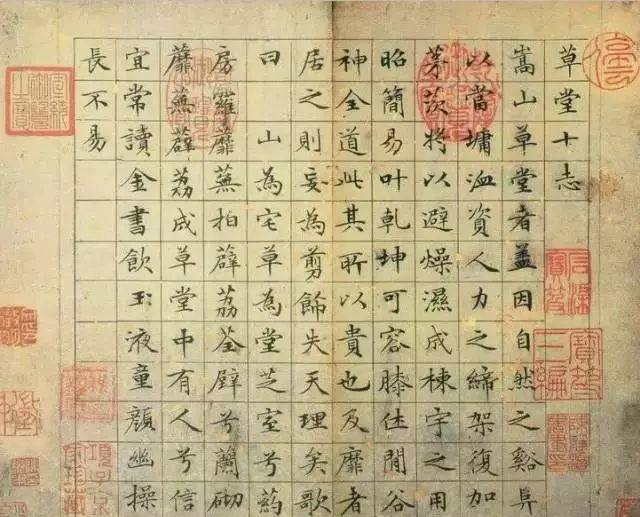 草堂十志
嵩山草堂者盖因自然之谿阜
以當墉洫資人力之締架復加
茅茨将以避燥濕成棟宇之用
昭簡易叶乾坤可容膝休閒谷
神全道此其所以貴也及靡者
居之則妄為剪飾失天理矣歌
曰 山為宅草為堂芝室兮葯
房羅蘼蕪拍薜荔荃壁兮蘭砌
蘼蕪薜荔成草堂中有人兮信
宜常讀金書飲玉液童顏幽操
長不易
石渠寶笈
寶笈三編